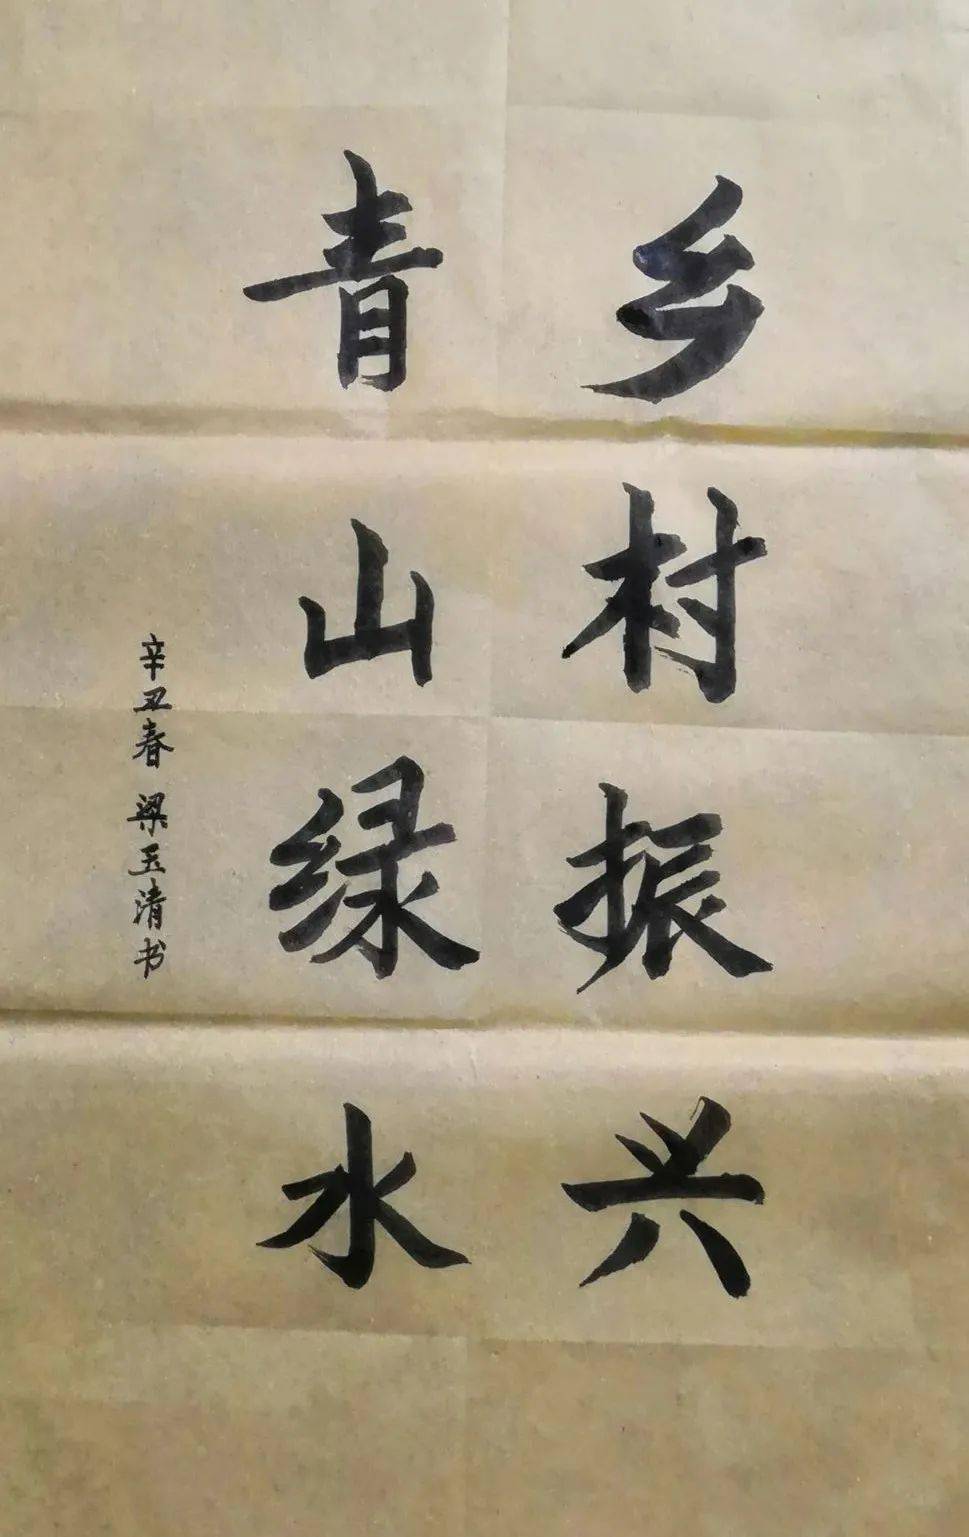 乡村振兴
青山绿水
辛丑春 梁玉清书